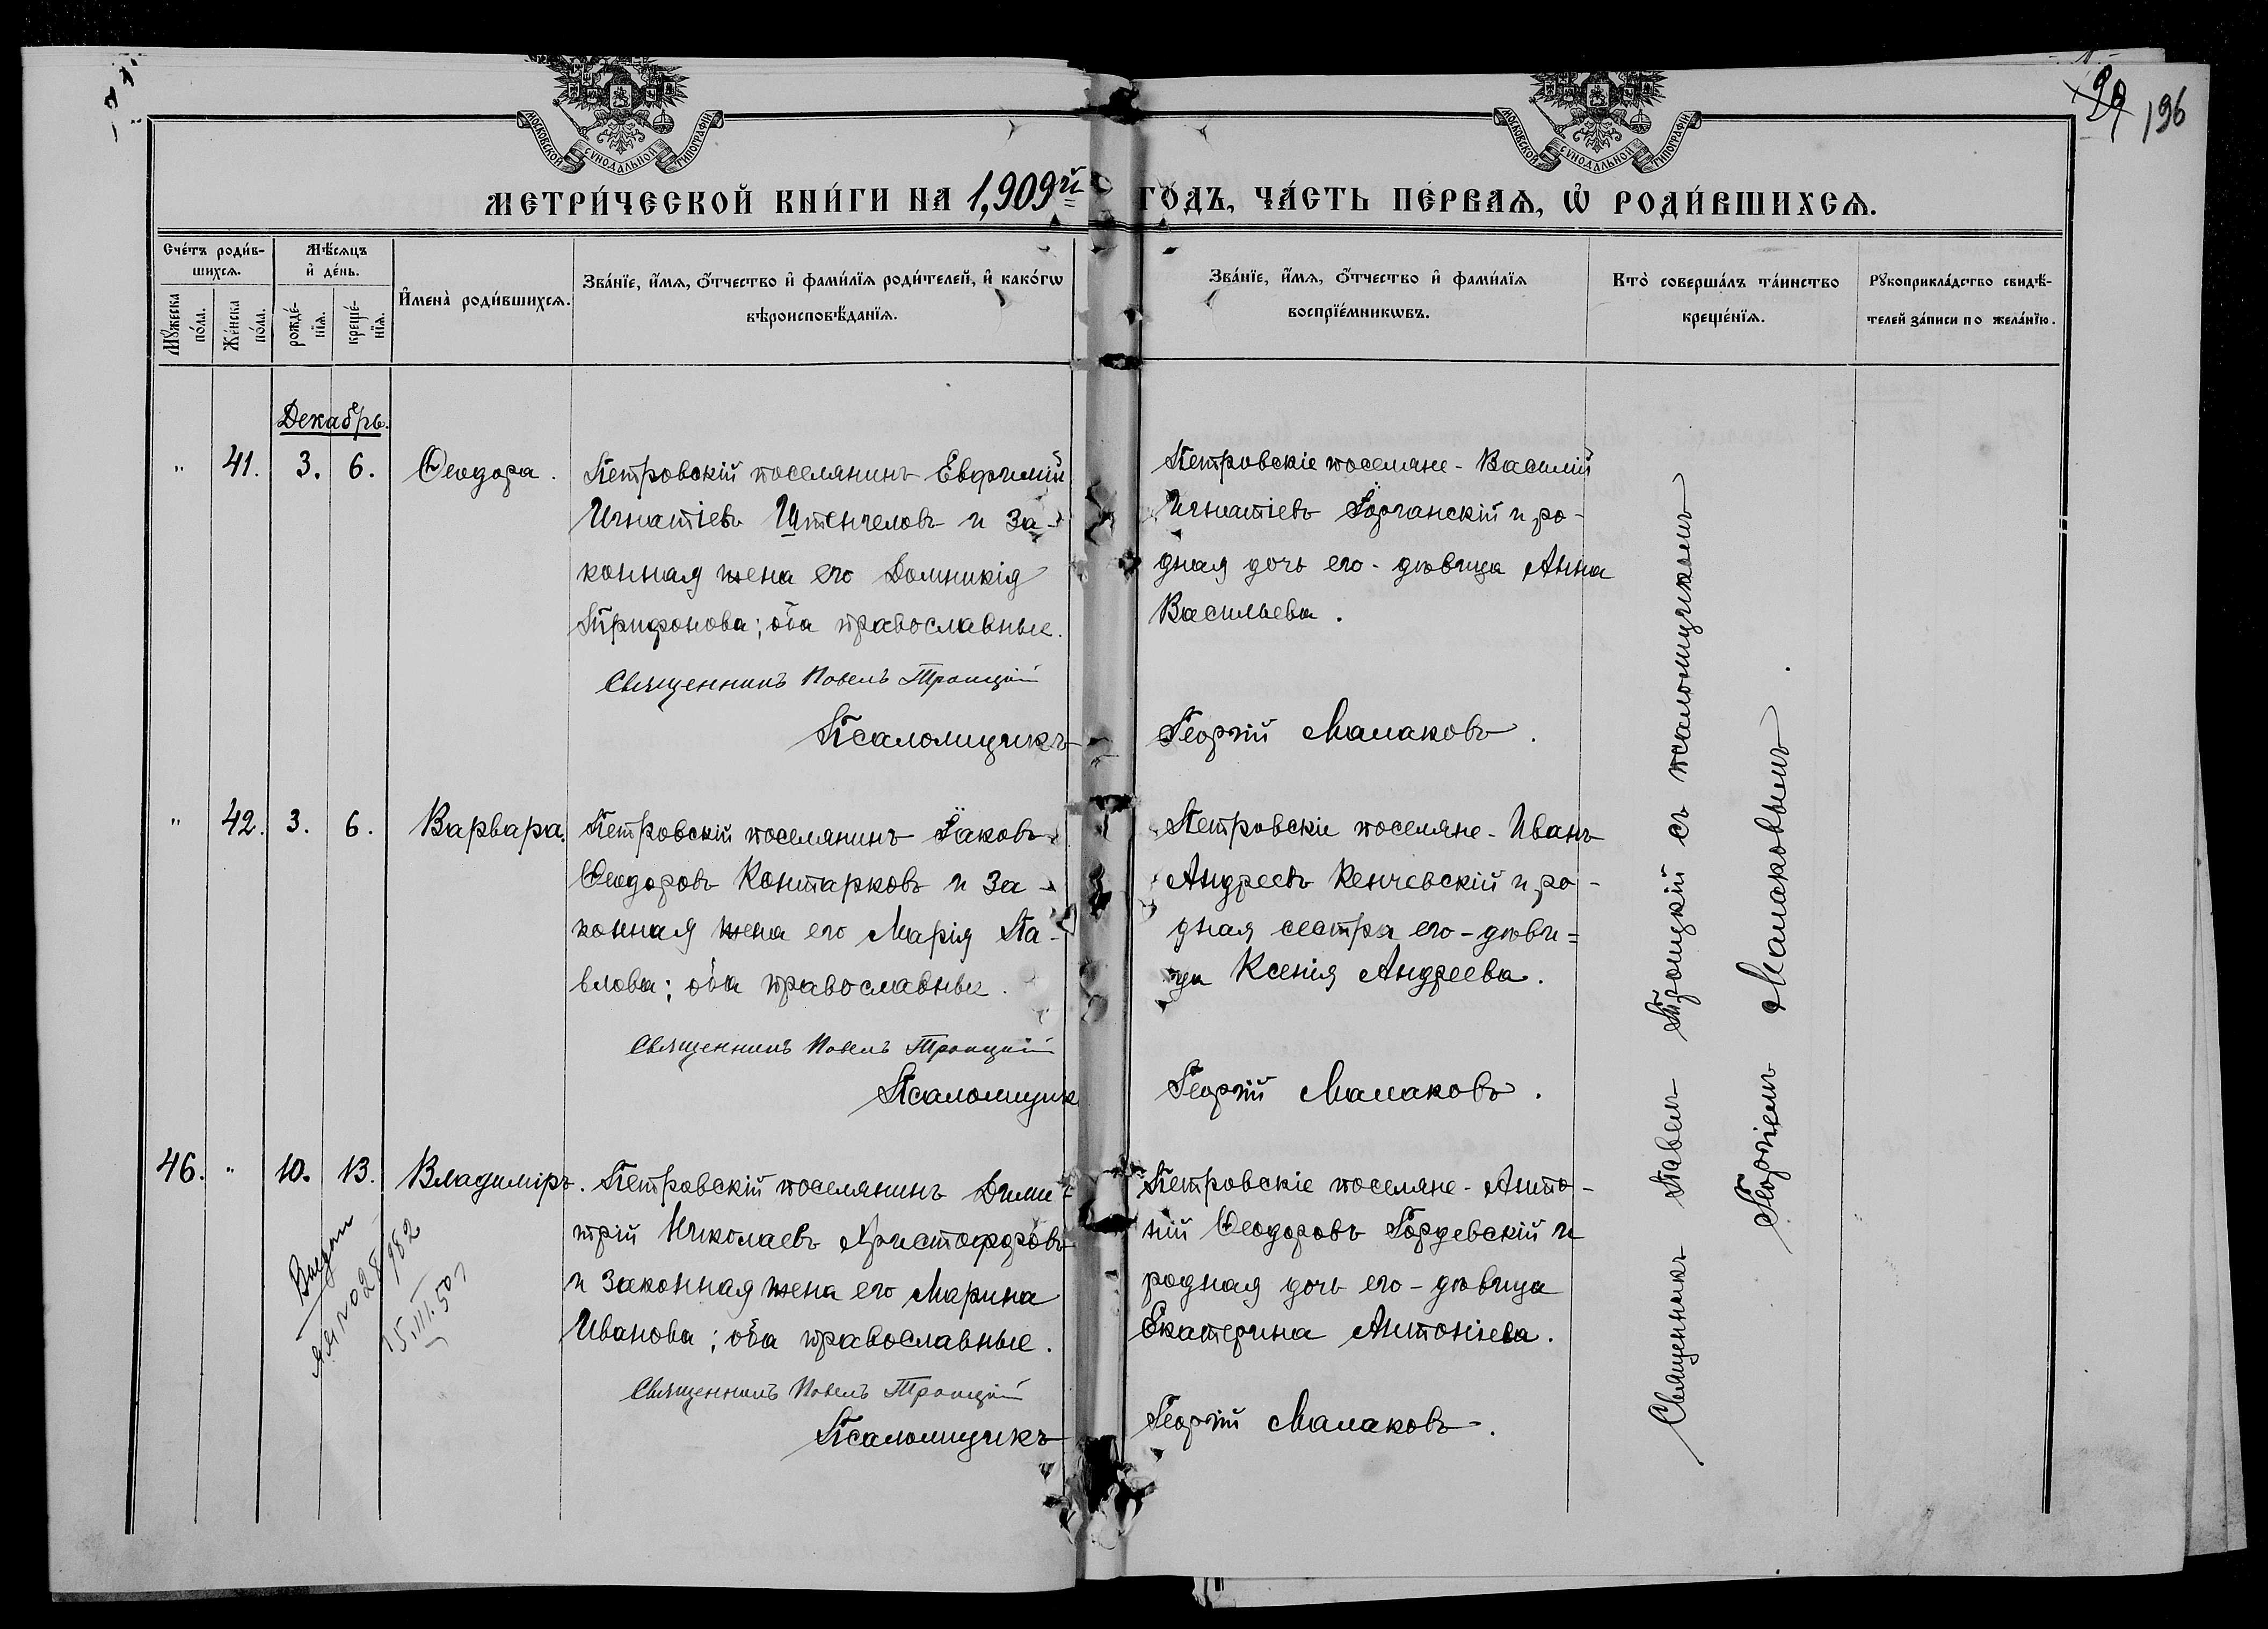 99 196
МОСКОВСКОЙ СѴНОДАЛЬНОЙ ТИПОГРАФІИ
МОСКОВСКОЙ СѴНОДАЛЬНОЙ ТИПОГРАФІИ
МЕТРИ́ЧЕСКОЙ КНИ́ГИ НА 1,909й ГОДЪ, ЧА́СТЬ ПЕ́РВАѦ, Ѡ҆ РОДИ́ВШИХСѦ.
Сче́тъ роди́в-
шихсѧ.
Мꙋ́жеска
по́ла.
Же́нска
по́ла.
Мѣ́сѧцъ
и҆ де́нь.
рожде́-
нїѧ.
креще́-
нїѧ.
И҆мена̀ роди́вшихсѧ.
Зва́нїе, и҆́мѧ, ѻ҆́тчество и҆ фами́лїѧ роди́телей, и҆ како́гѡ
вѣроисповѣ́данїѧ.
Зва́нїе, и҆́мѧ, ѻ҆́тчество и҆ фами́лїѧ
воспрїе́мникѡвъ.
Кто̀ соверша́лъ та́инство
креще́нїѧ.
Рꙋкоприкла́дство свидѣ́-
телей за́писи по жела́нїю.
Декабрь.
" 41. 3. 6. Ѳеодора.
Петровскій поселянинъ Евфимій
Игнатіевъ Штенчеловъ и за-
конная жена его Домникія
Трифонова; оба православные.
Священникъ Павелъ Троицкій
Псаломщикъ
Петровскіе поселяне - Василій
Игнатіевъ Горганскій и ро-
дная дочь его - дѣвица Анна
Васильева.
Георгій Малаковъ.
" 42. 3. 6. Варвара.
Петровскій поселянинъ Іаковъ
Ѳеодоровъ Контарковъ и за-
конная жена его Марія Па-
влова; оба православные.
Священникъ Павелъ Троицкій
Псаломщик
Петровскіе поселяне - Иванъ
Андреевъ Кенчевскій и ро-
дная сестра его - дѣви=
ца Ксенія Андреева.
Георгій Малаковъ.
46. " 10. 13. Владиміръ.
Петровскій поселянинъ Дими-
трій Николаевъ Христофоровъ
и законная жена его Марина
Иванова; оба православные.
Священникъ Павелъ Троицкій
Псаломщикъ
Петровскіе поселяне - Анто-
ній Ѳеодоровъ Гордевскій и
родная дочь его - дѣвица
Екатерина Антоніева.
Георгій Малаковъ.
15.III.50
Священникъ Павелъ Троицкій съ псаломщикомъ
Георгіемъ Малаковымъ.